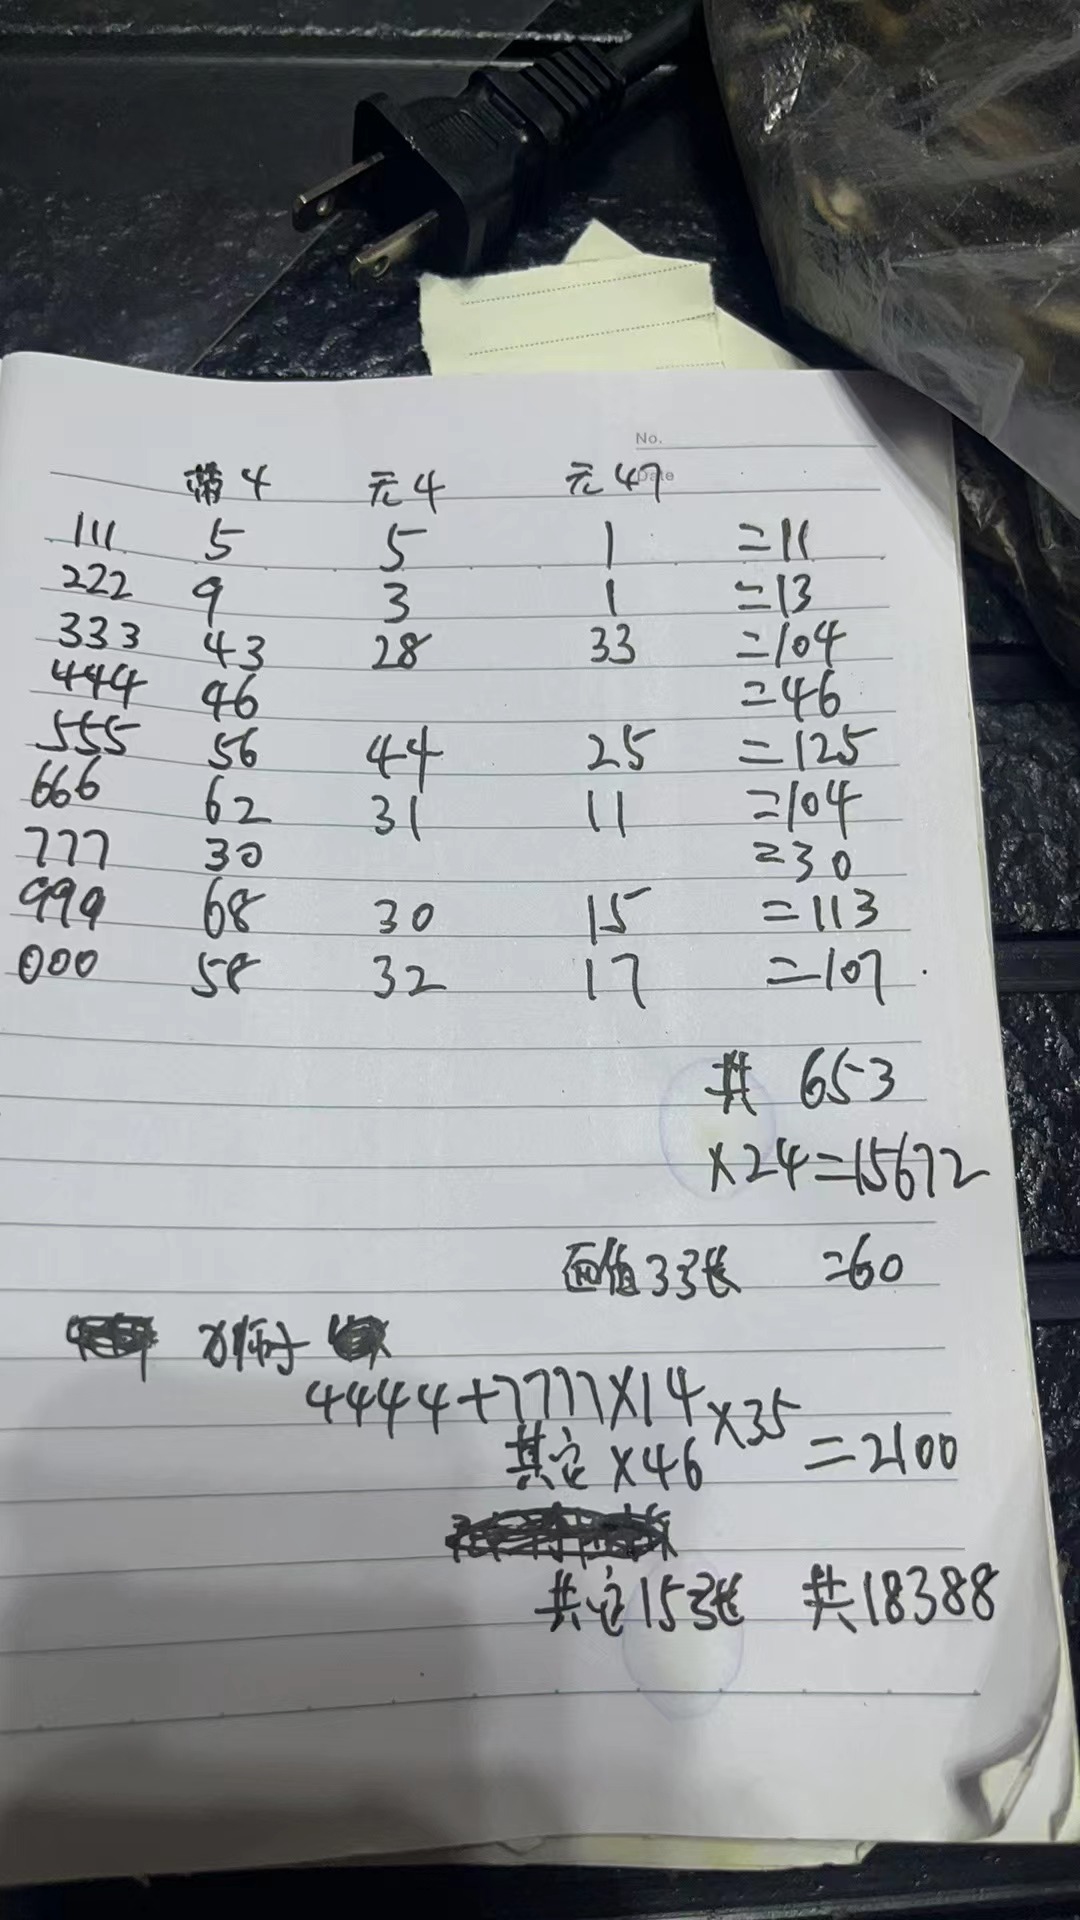 No.
Date
带4 元4 元47
111 5 5 1 =11
222 9 3 1 =13
333 43 28 33 =104
444 46 =46
555 56 44 25 =125
666 62 31 11 =104
777 30 =30
999 68 30 15 =113
000 58 32 17 =107
共 653
×24=15672
面值33张 =60
4444+7777×14 ×35
其它×46 =2100
共它15张 共18388